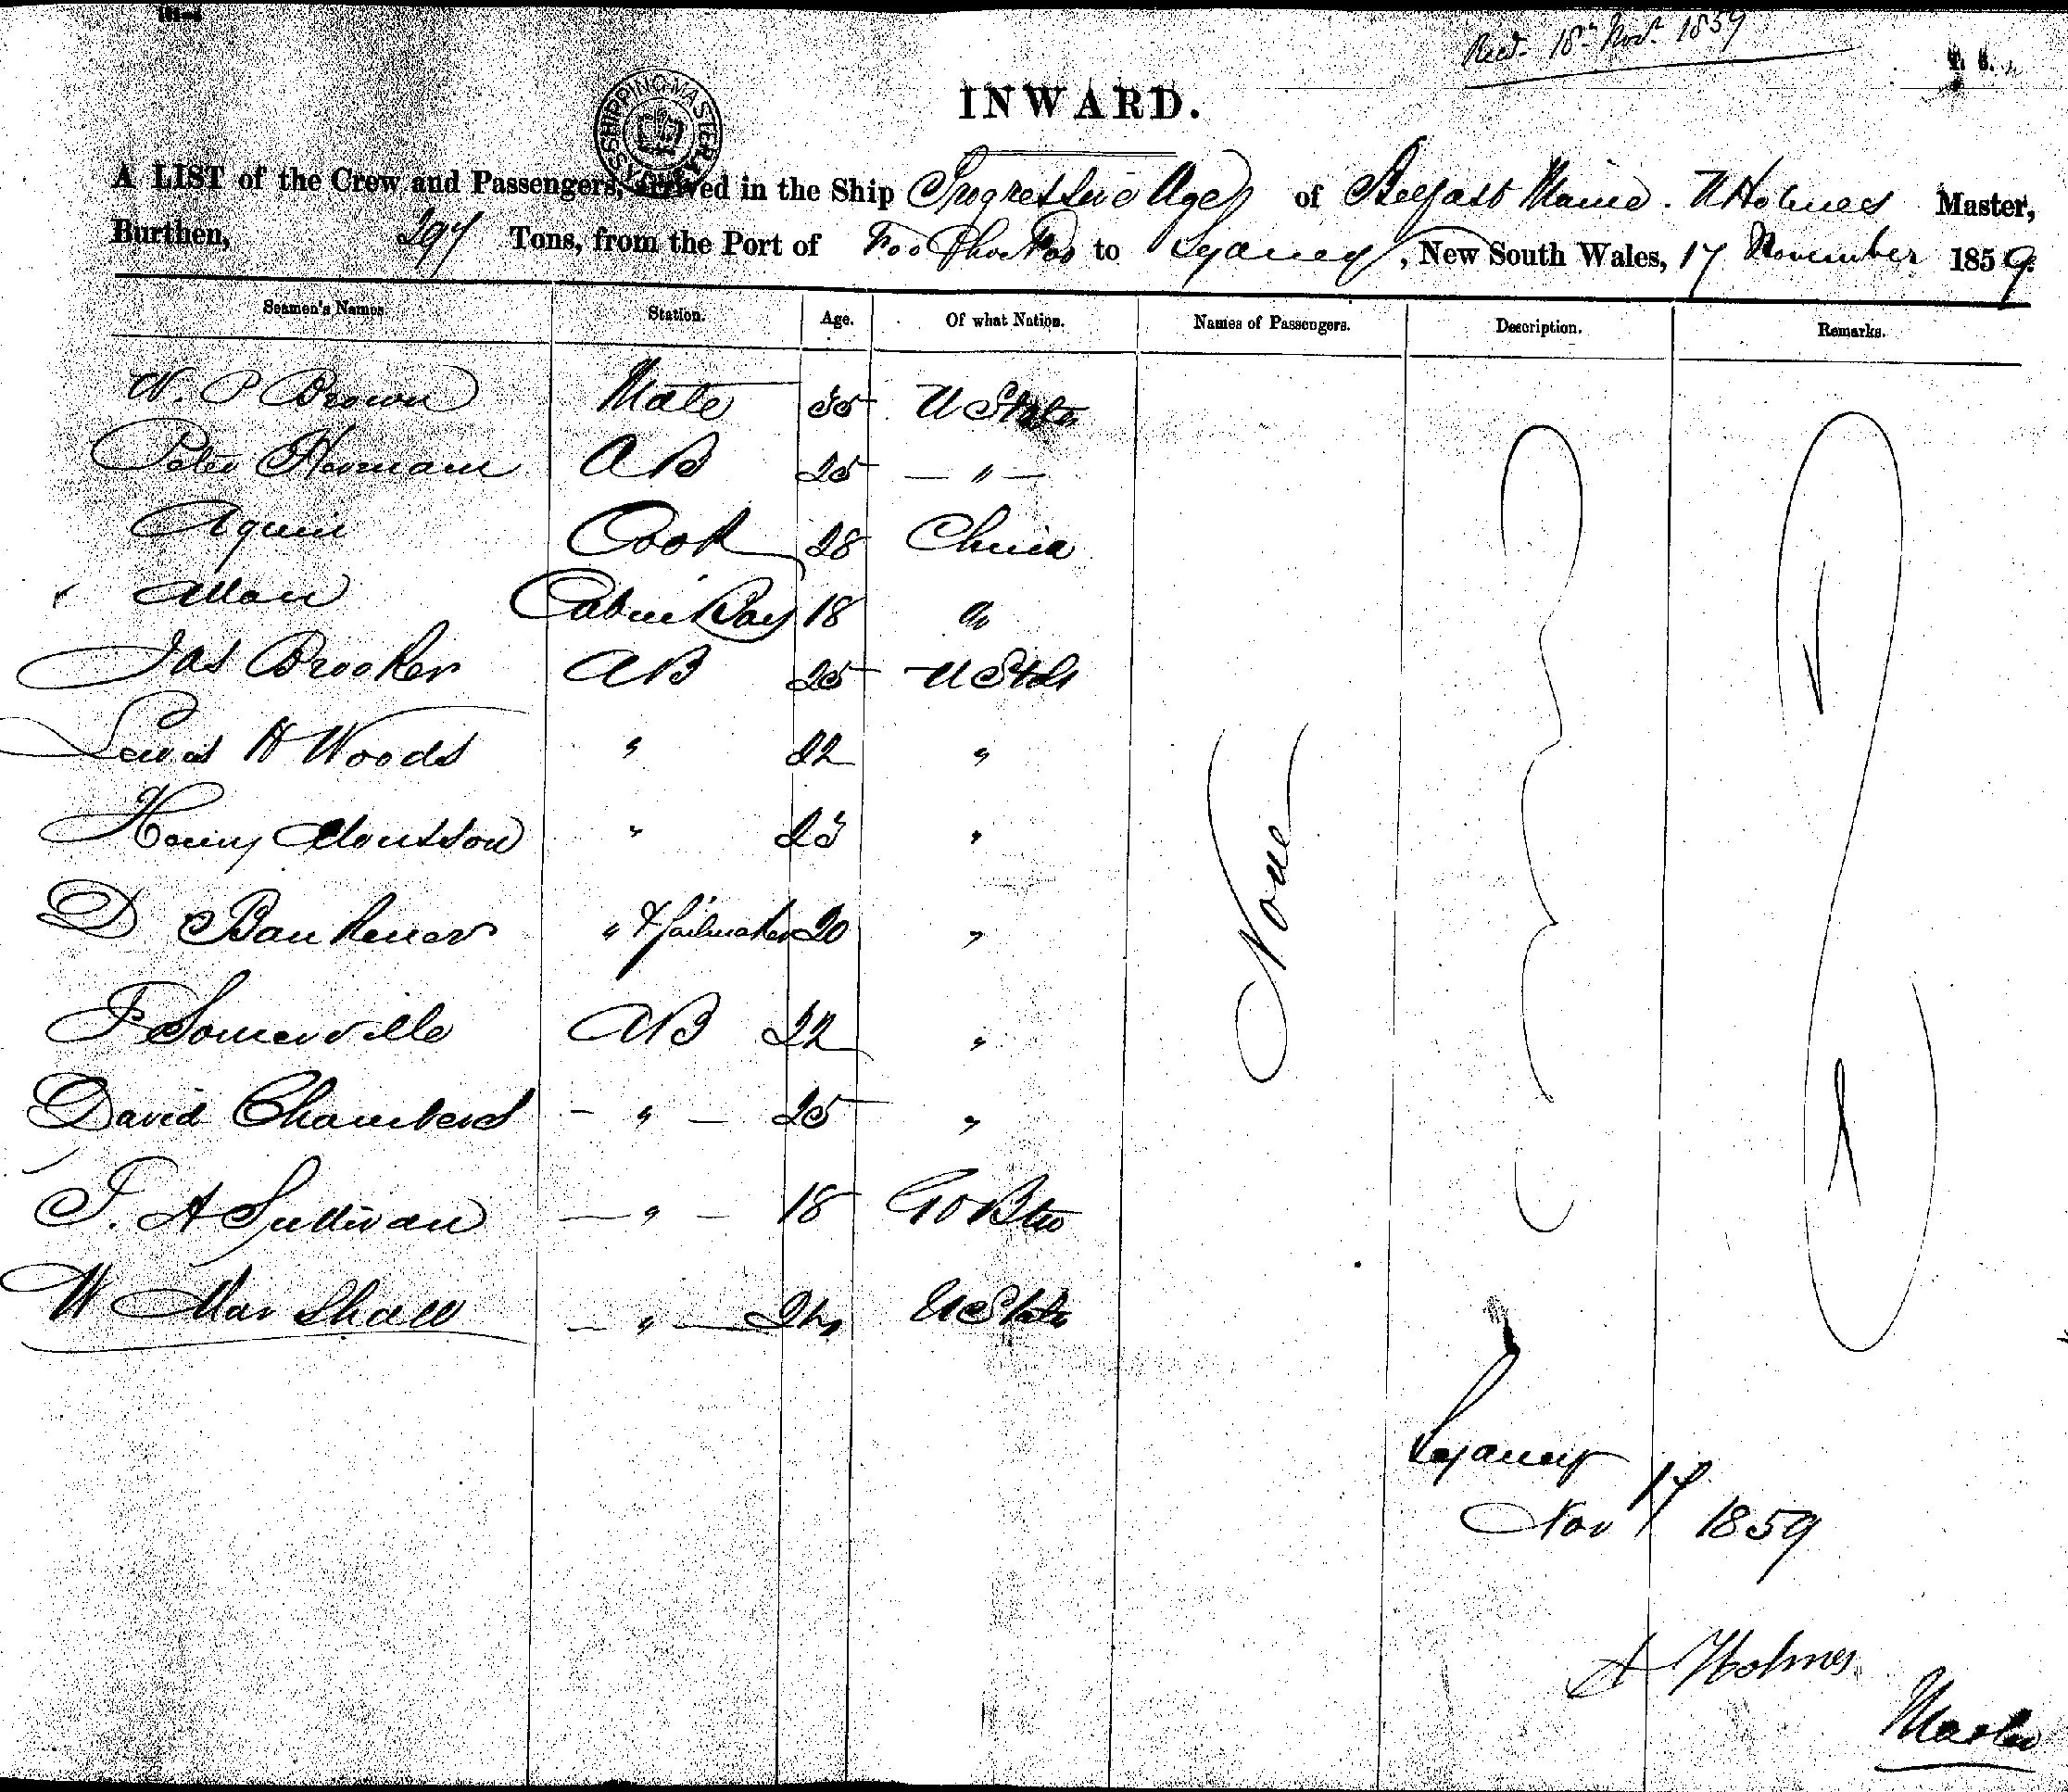 Recd. 18th Novr. 1859
INWARD.
SHIPPING MASTER SYDNEY
A LIST of the Crew and Passengers, arrived in the Ship Progressive Age of Belfast Maine. Holmes Master,
Burthen, 297 Tons, from the Port of Foo Choo Foo to Sydney, New South Wales, 17 November 1859.
Seamen's Names. Station. Age. Of what Nation. Names of Passengers. Description. Remarks.
W. P Brown Mate 35 U States
Peter Hermann AB 25 — " —
Cook 28 China
Allan Cabin Boy 18 Do
Jas Brooker AB 25 U Stats
Lewis H Woods " 22 "
Henry " 23 "
D " & Sailmaker 20 "
F Somerville AB 22 "
David Chambers - " — 25 "
J. A Sullivan — " — 18
W Marshall — " — 24 U States
None
Sydney
Nov 17 1859
A Holmes
Master